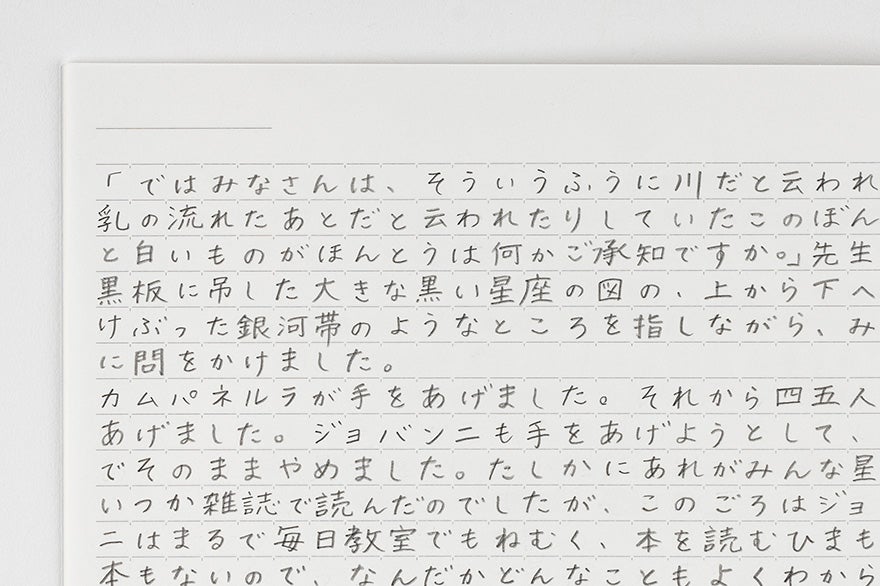 「ではみなさんは、そういうふうに川だと云われ
乳の流れたあとだと云われたりしていたこのぼん
と白いものがほんとうは何かご承知ですか。」先生
黒板に吊した大きな黒い星座の図の、上から下へ
けぶった銀河帯のようなところを指しながら、み
に問をかけました。
カムパネルラが手をあげました。それから四五人
あげました。ジョバンニも手をあげようとして、
でそのままやめました。たしかにあれがみんな星
いつか雑誌で読んだのでしたが、このごろはジョ
ニはまるで毎日教室でもねむく、本を読むひまも
本もないので、なんだかどんなこともよくわから